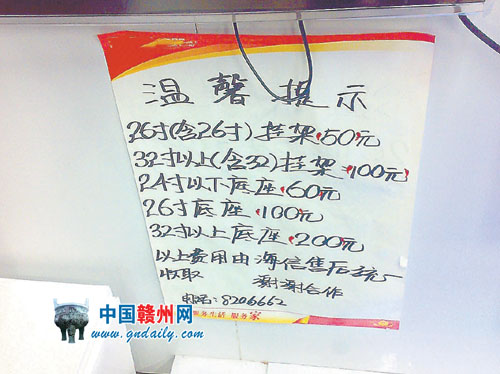 温馨提示
26寸(含26寸)挂架50元
32寸以上(含32)挂架100元
24寸以下底座60元
26寸底座100元
32寸以上底座200元
以上费用由海信售后统一
收取 谢谢合作
电话:8206662
服务生活 服务家
中国赣州网
www.gndaily.com